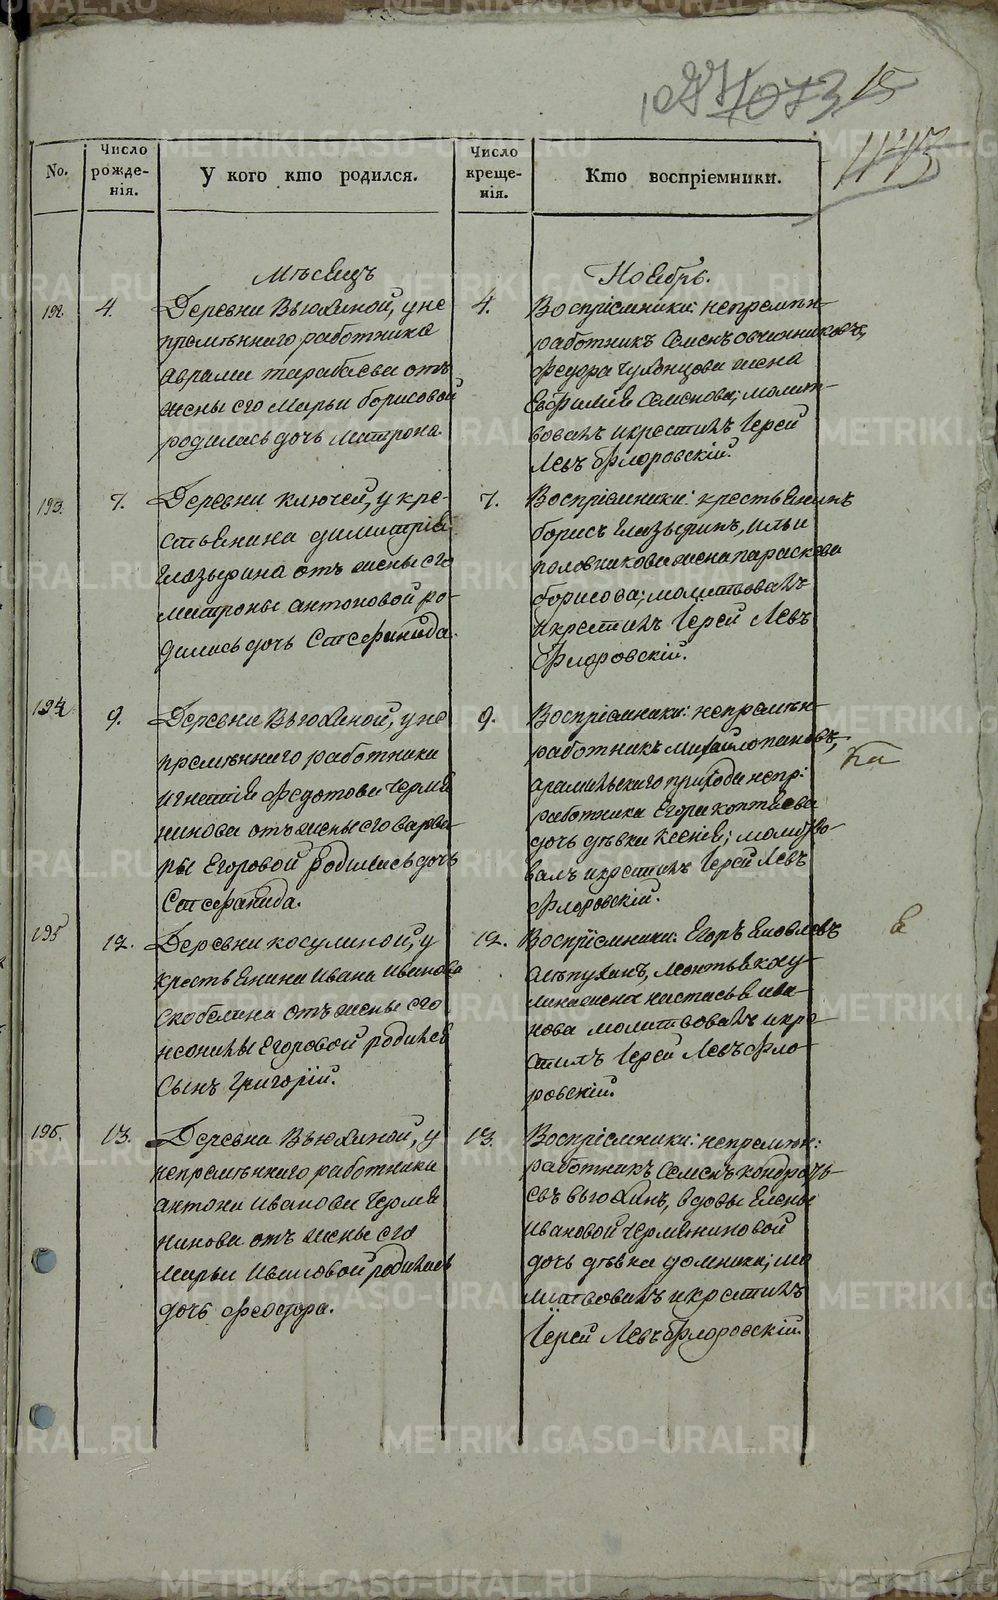 15
1073
1143
No.
Число рожде-нія.
У кого кто родился.
Число креще-нія.
Кто воспріемники.
Мѣсяцъ
Ноябрь.
192.
4.
Деревни Вьюхиной, у не
премѣннаго работника
аврама тарабаева отъ
жены его Марьи борисовой
родилась дочь Матрона.
4.
Воспріемники: непремѣн-
работникъ Семенъ овчинниковъ,
Феодора
жена
Евфимія Семенова; молит-
вовалъ и крестилъ Іерей
Левъ Флоровскій.
193.
7.
Деревни ключей, у кре-
стьянина димитрія
Глазырина отъ жены его
матроны антоновой ро-
дилась дочь Стефанида.
7.
Воспріемники: крестьянинъ
борисъ Глазыринъ, ильи
половникова жена параскева
борисова; молитвовалъ
и крестилъ Іерей Левъ
Флоровскій.
194.
9.
Деревни Вьюхиной, у не
премѣннаго работника
игнатія Федотова Черемя
нинова отъ жены его варва-
ры Егоровой родилась дочь
Стефанида.
9.
Воспріемники: непремѣн-
работникъ Михайло пановъ,
арамильскаго прихода непр:
работника Егора коптяева
дочь дѣвка Ксенія; молитво-
валъ и крестилъ Іерей Левъ
Флоровскій.
195
12.
Деревни косулиной, у
крестьянина Ивана Иванова
скобелина отъ жены его
неонилы Егоровой родился
Сынъ Григорій.
12.
Воспріемники: Егоръ Яковлевъ
жена настасья ива-
нова молитвовалъ и кре-
стилъ Іерей Левъ Фло-
ровскій.
196.
13.
Деревни Вьюхиной, у
непремѣннаго работника
антона Иванова Черемя
нинова отъ жены его
Марьи Ивановой родилась
дочь Феодора.
13.
Воспріемники: непремѣн:
работникъ Семенъ кондрать-
евъ вьюхинъ, вдовы Елены
Ивановой Черемяниновой
дочь дѣвка домника; мо
литвовалъ и крестилъ
Іерей Левъ Флоровскій.
METRIKI.GASO-URAL.RU